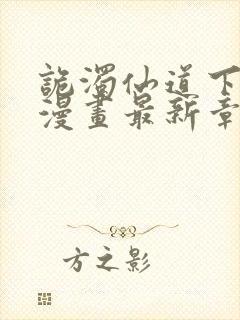 詭濁仙道下
漫畫最新章
方之影